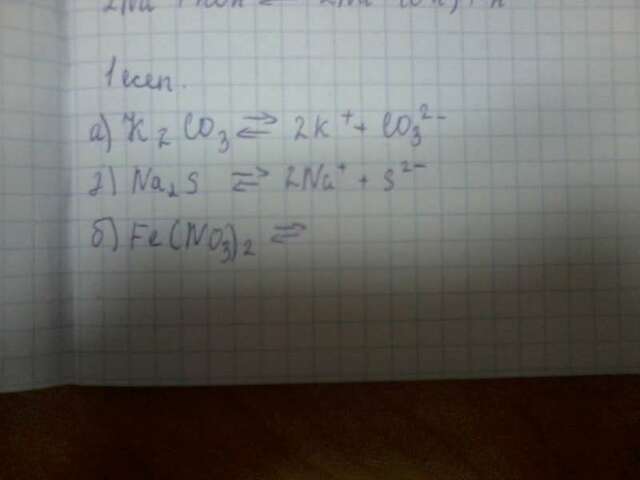 1 есеп.
а) K2CO3 ⇌ 2K⁺ + CO3²⁻
г) Na2S ⇌ 2Na⁺ + S²⁻
б) Fe(NO3)2 ⇌